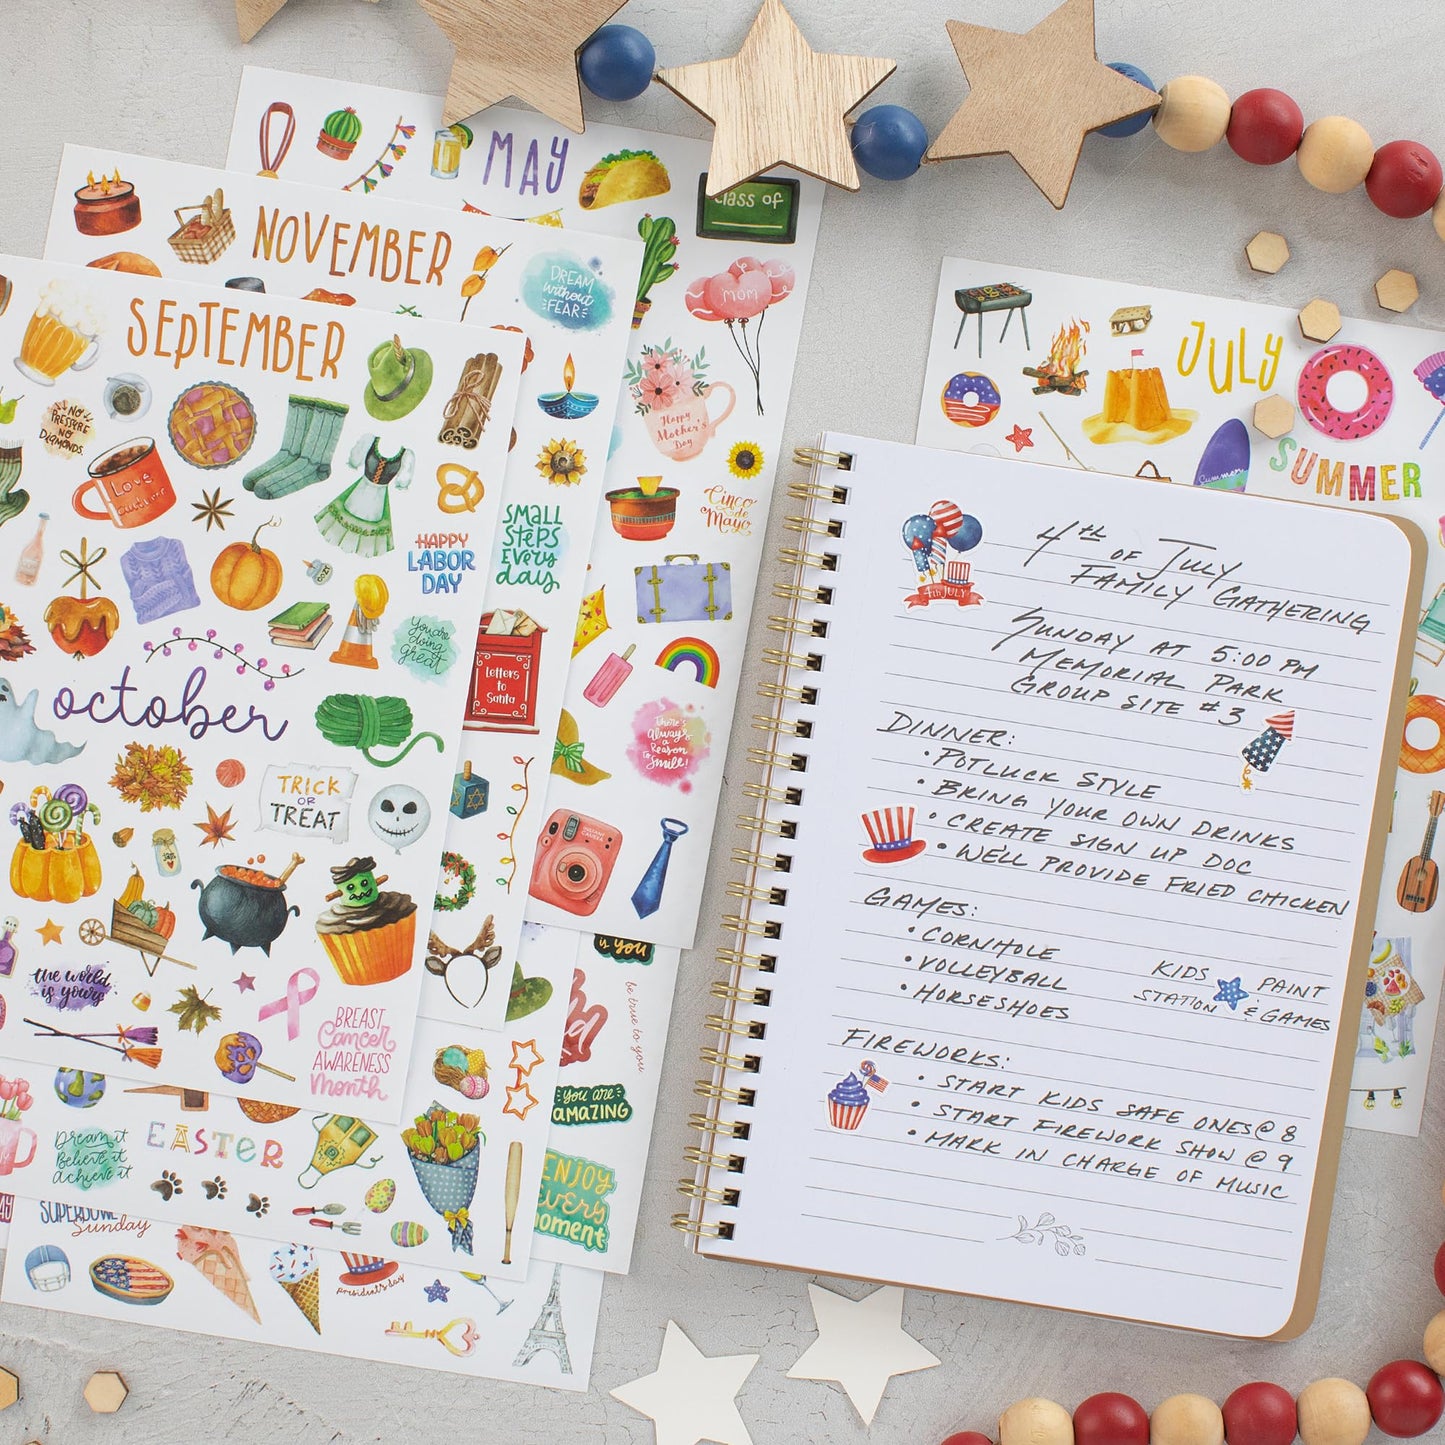 MAY
class of
NOVEMBER
DREAM
without
FEAR
MOM
SEPTEMBER
NO
PRESSURE
NO
DIAMONDS.
Love
Happy
Mother's
Day
Cinco
de
Mayo
HAPPY
LABOR
DAY
SMALL
STEPS
EVERY
day
You are
doing
great
Letters
to
Santa
There's
always
a
Reason
To
Smile!
october
TRICK
OR
TREAT
the world
is yours
BREAST
Cancer
AWARENESS
Month
is you
be true to you
you are
AMAZING
ENJOY
every
moment
Dream it
Believe it
achieve it
EASTER
SUPERBOWL
Sunday
president's day
JULY
Summer
SUMMER
4TH JULY
4TH
OF JULY
FAMILY GATHERING
SUNDAY AT 5:00 PM
MEMORIAL PARK
GROUP SITE #3
DINNER:
• POTLUCK STYLE
• BRING YOUR OWN DRINKS
• CREATE SIGN UP DOC
• WE'LL PROVIDE FRIED CHICKEN
GAMES:
• CORNHOLE
• VOLLEYBALL
• HORSESHOES
KIDS PAINT
STATION & GAMES
FIREWORKS:
• START KIDS SAFE ONES @ 8
• START FIREWORK SHOW @ 9
• MARK IN CHARGE OF MUSIC